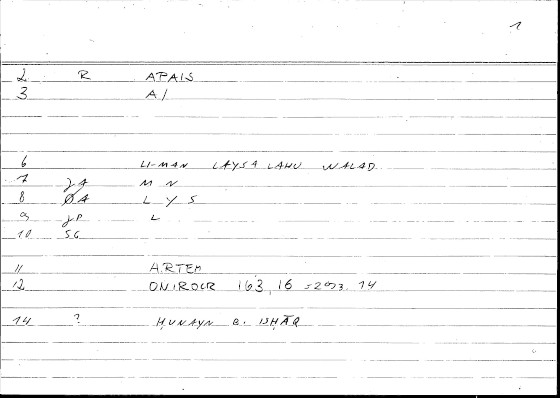 1
2 R APAIS
3 A/
6 LI-MAN LAYSA LAHU WALAD
7 JA M N
8 ØA L Y S
9 JP L
10 SG
11 ARTEM
12 ONIROCR 163, 16 =203. 14
14 ? ḤUNAYN B. ISḤĀQ